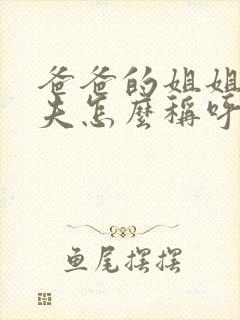 爸爸的姐姐
夫怎麼稱呼
鱼尾摆摆